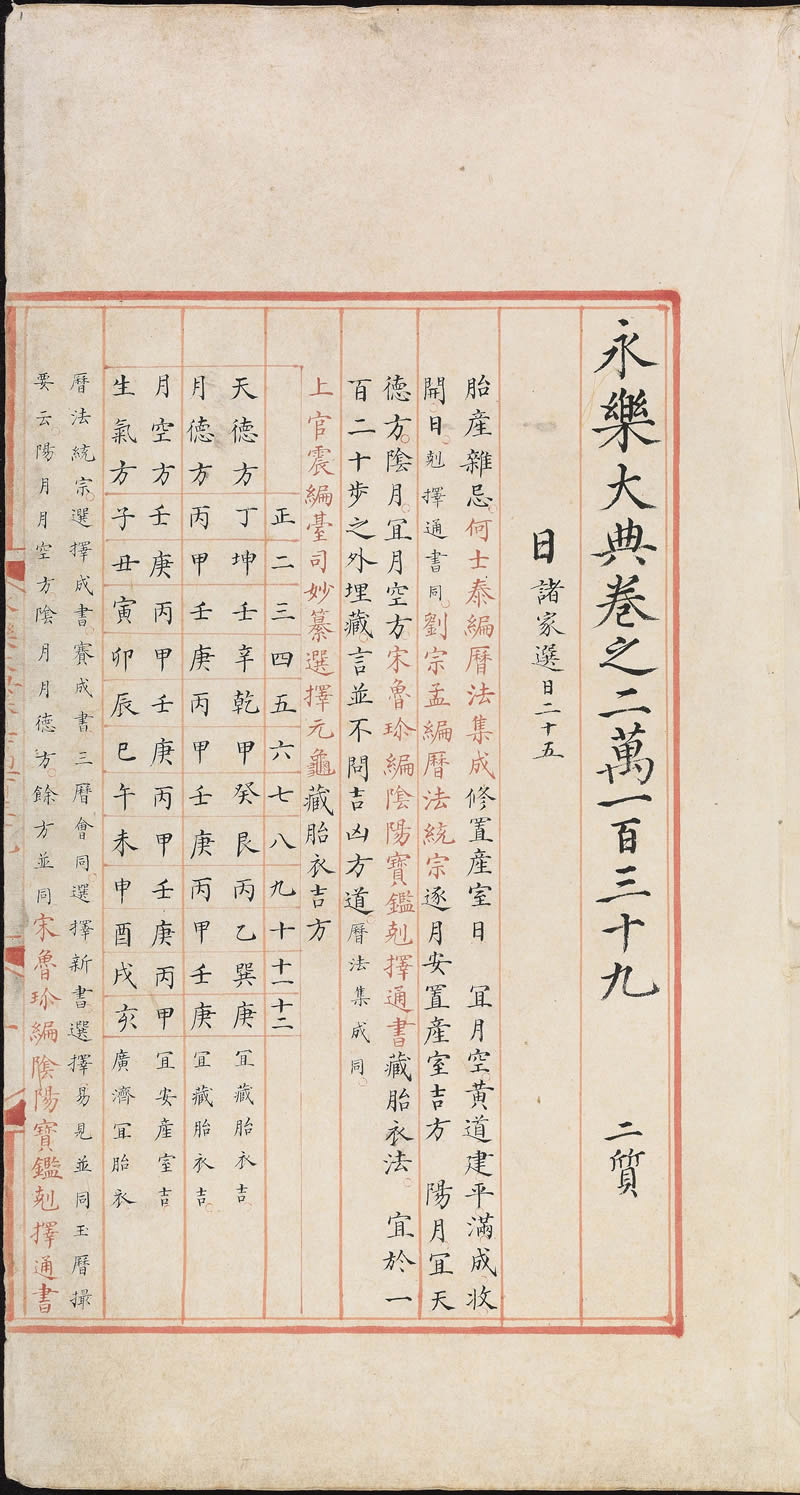 永樂大典卷之二萬一百三十九　二質
日諸家選日二十五
胎產雜忌何士泰編曆法集成修置產室日　宜月空黃道建平滿成收
開日剋擇通書同劉宗孟編曆法統宗逐月安置產室吉方　陽月宜天
德方陰月宜月空方宋魯珍編陰陽寶鑑剋擇通書藏胎衣法　宜於一
百二十步之外埋藏言並不問吉凶方道曆法集成同
上官震編臺司妙纂選擇元龜藏胎衣吉方
正二三四五六七八九十十一十二
天德方丁坤壬辛乾甲癸艮丙乙巽庚宜藏胎衣吉
月德方丙甲壬庚丙甲壬庚丙甲壬庚宜藏胎衣吉
月空方壬庚丙甲壬庚丙甲壬庚丙甲宜安產室吉
生氣方子丑寅卯辰巳午未申酉戌亥廣濟宜胎衣
曆法統宗選擇成書賽成書三曆會同選擇新書選擇易見並同玉曆撮
要云陽月月空方陰月月德方餘方並同宋魯珍編陰陽寶鑑剋擇通書